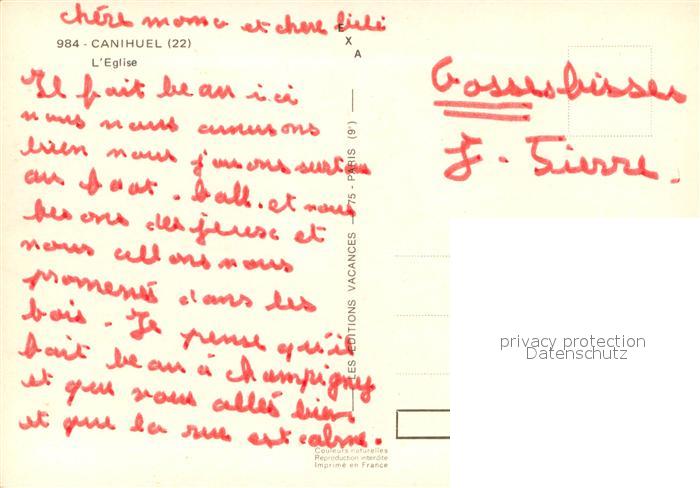 chére moma et chere lili
984 - CANIHUEL (22)
L'Eglise
E X A
Il fait beau ici
nous nous amusons
bien nous jouons surtou
au foot-ball. et nous
fesons des jeux et
nous allons nous
promené dans les
bois. Je pense qu'il
fait beau à champigny
et que vous allés bien
et que la rue est calme.
Gosses bisses
J. Pierre.
LES EDITIONS VACANCES - 75 - PARIS (9e)
Couleurs naturelles
Reproduction interdite
Imprimé en France
privacy protection
Datenschutz